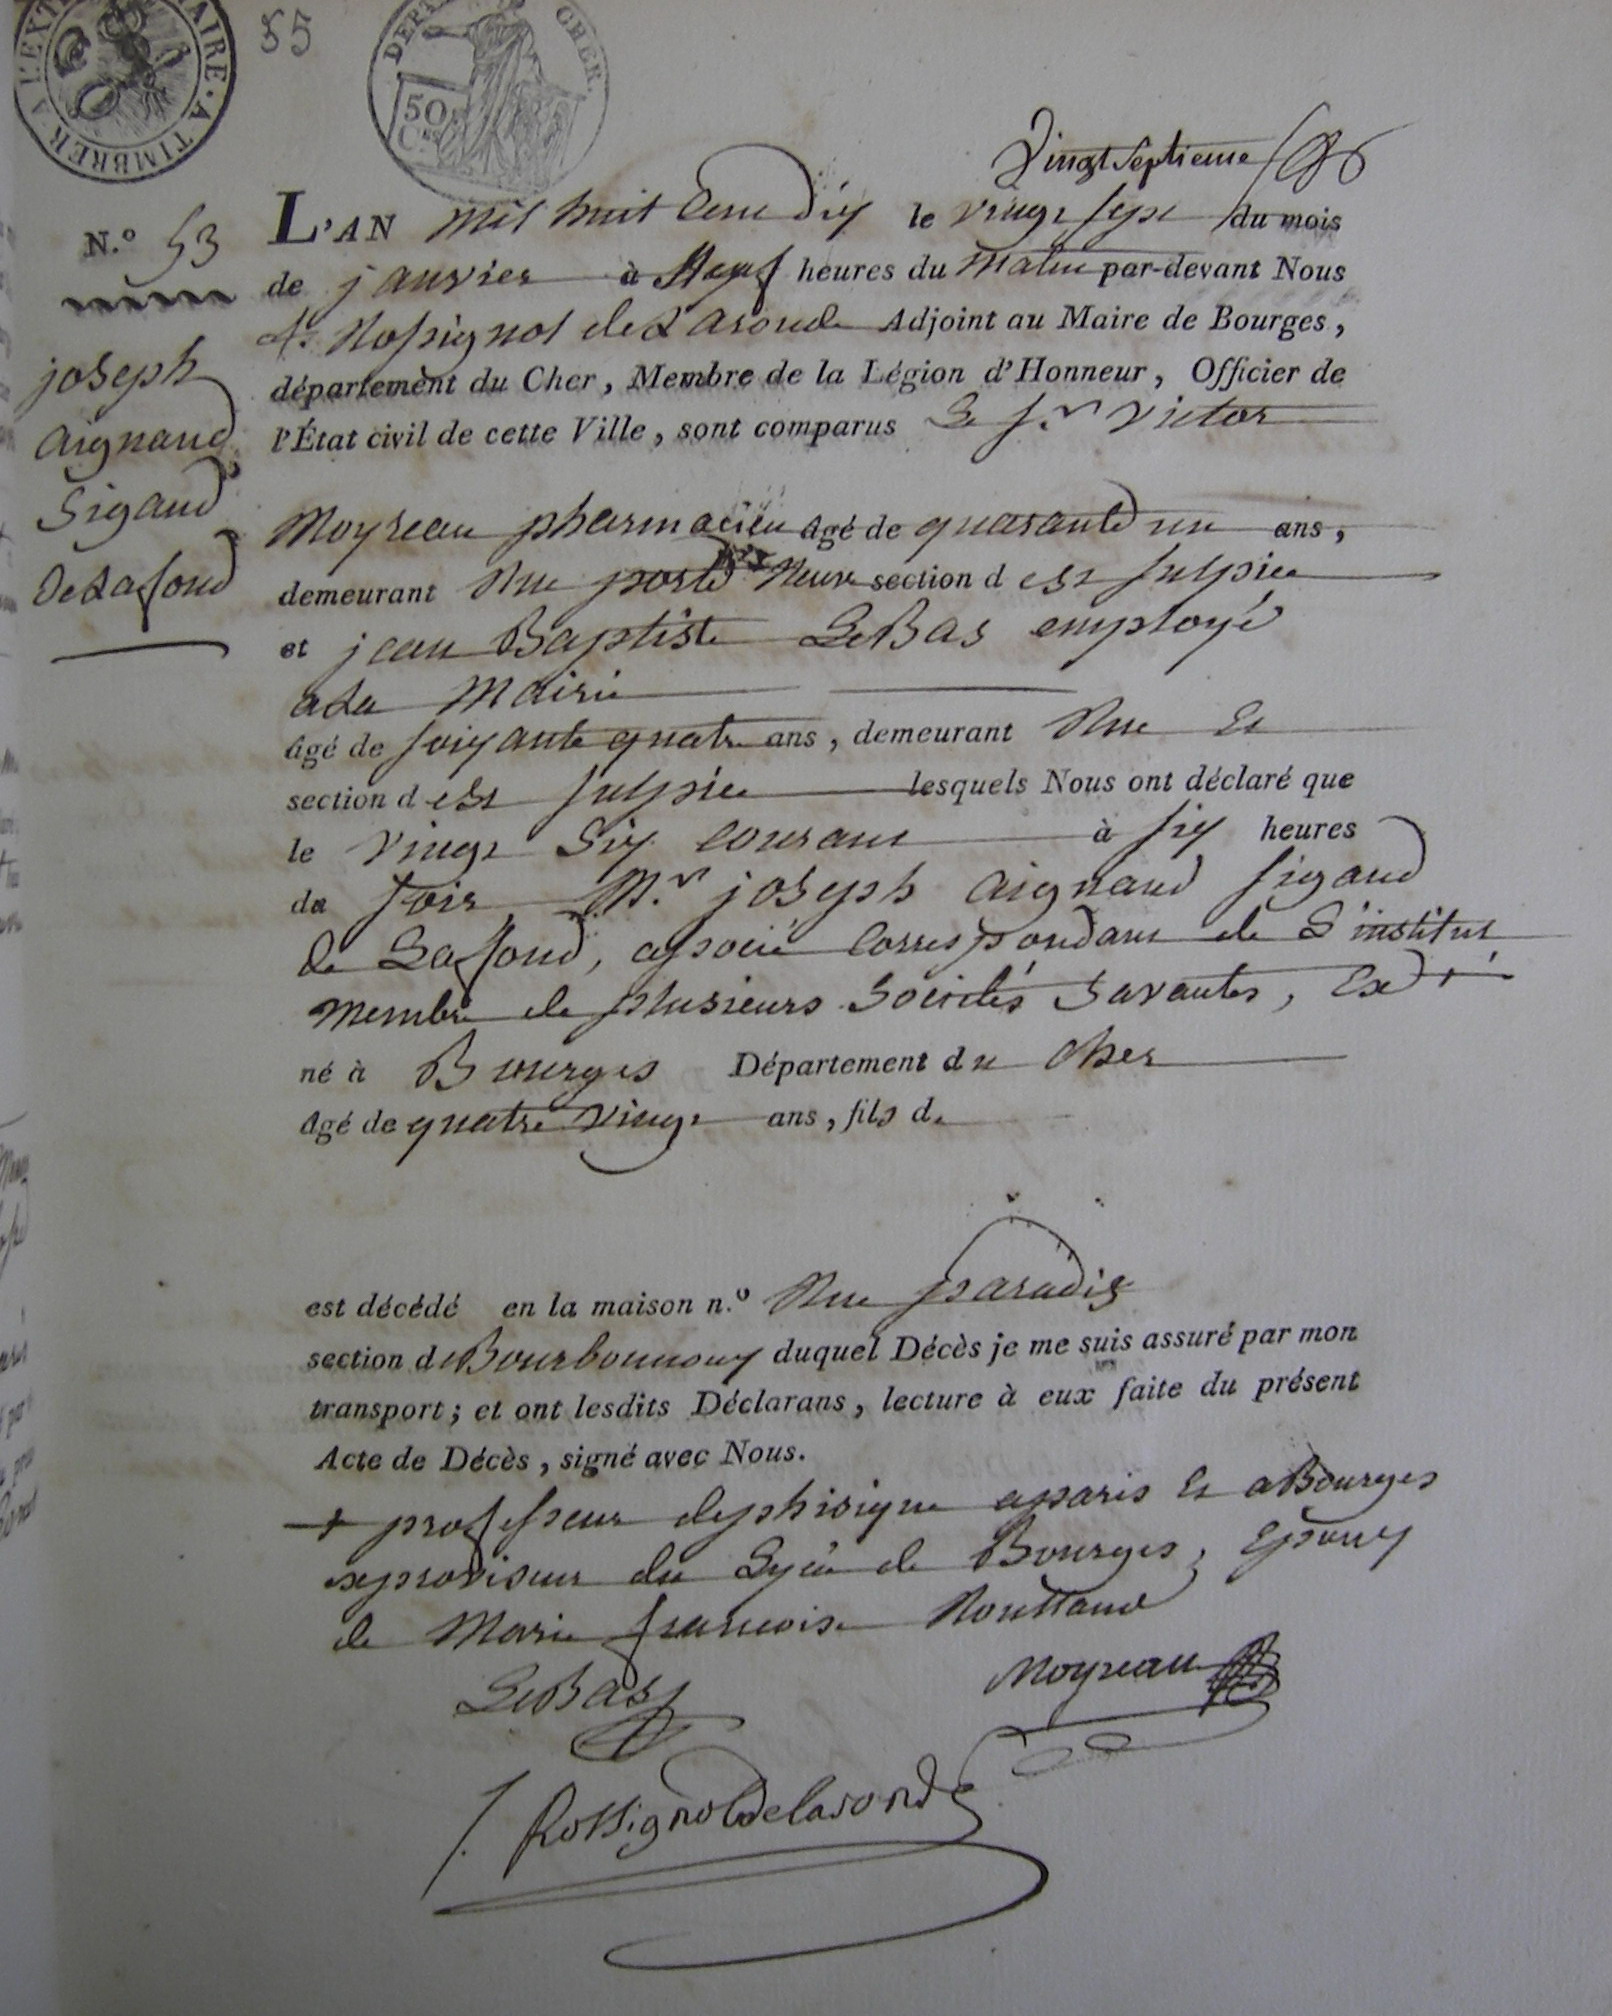 A L'EXTRAORDINAIRE. A TIMBRER.
55
CHER.
50
Cmes
Vingt Septieme
N.º 53
L'AN mil huit Cent Dix le vingt Sept du mois
de janvier à Neuf heures du Matin par-devant Nous
Rossignol de Laronde Adjoint au Maire de Bourges,
joseph
aignaud
Sigaud
DeLafond
département du Cher, Membre de la Légion d'Honneur, Officier de
l'État civil de cette Ville, sont comparus Le Sr Victor
Moyreau pharmacien âgé de quarante un ans,
demeurant Rue porte Neuve section d est Sulpice
et jean Baptiste LeBas employé
a La Mairie
âgé de soixante quatre ans, demeurant Rue Et
section d est Sulpice lesquels Nous ont déclaré que
le vingt Six Courant à six heures
du Soir Mr joseph aignaud Sigaud
de Lafond, associé Correspondant de L'institut
Membre de plusieurs Sociétés Savantes, Ex +
né à Bourges Département du Cher
âgé de quatre vingt ans, fils d.
est décédé en la maison n.º Rue paradis
section d Bourbonnoux duquel Décès je me suis assuré par mon
transport; et ont lesdits Déclarans, lecture à eux faite du présent
Acte de Décès, signé avec Nous.
+ professeur de phisique a paris Et a Bourges
exproviseur du Lycée de Bourges, Epoux
de Marie francoise Routtand
LeBas
Moyreau
J. Rossignol Delaronde